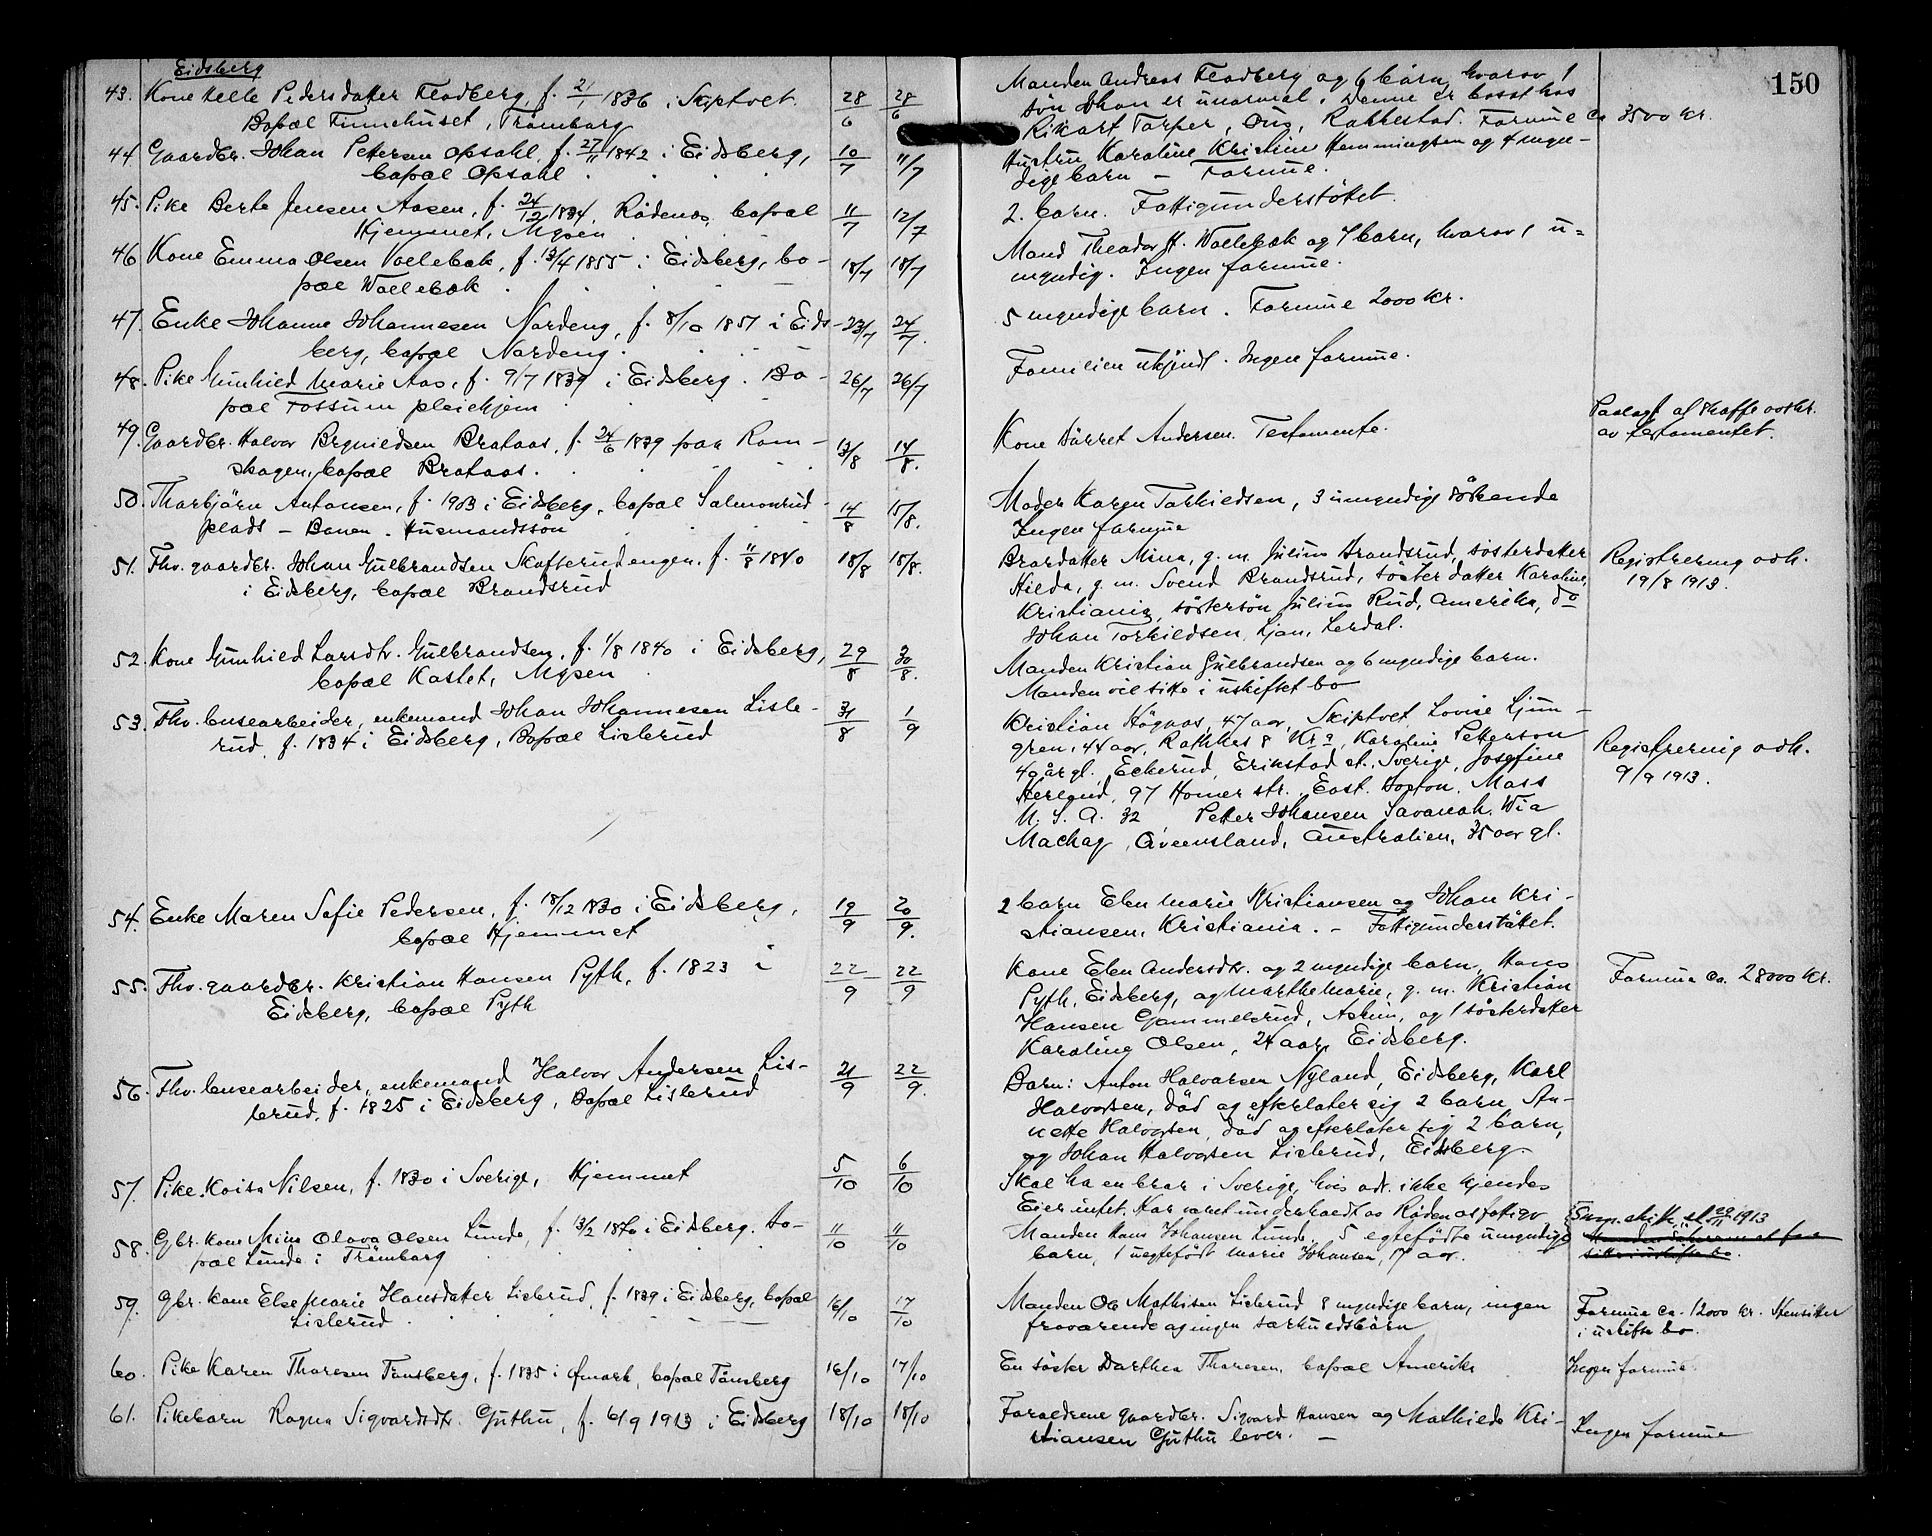 150
Eidsberg
43. Kone Helle Pedersdatter Fladberg, f. 21/1 1836 i Skiptvet. 28/6 28/6
Bopæl Finnehuset, Trømborg
Manden Andreas Fladberg og 6 barn, hvorav 1
søn Johan er unormal. Denne er bosat hos
Rikart Torper, Os, Rakkestad. Formue ca 3500 kr.
44. Gaardbr. Johan Pettersen Opsahl, f. 27/11 1842 i Eidsberg, 10/7 11/7
bopæl Opsahl
Hustru Karoline Kristine Hemmingsen og 4 myn-
dige barn – Formue.
45. Pike Berte Jensen Aasen, f. 24/12 1834, Rødenæs, bopæl 11/7 12/7
Hjemmet, Mysen
2 barn. Fattigunderstøtet.
46 Kone Emma Olsen Vollebæk, f. 13/4 1855 i Eidsberg, bo- 18/7 18/7
pæl Wollebæk
Mand Theodor H. Wollebæk og 7 barn, hvorav 1 u-
myndig. Ingen formue.
47. Enke Johanne Johannesen Nordeng, f. 8/10 1851 i Eids- 23/7 24/7.
berg, bopæl Nordeng.
5 myndige barn. Formue 2000 kr.
48. Pike Gunhild Marie Aas, f. 9/7 1839 i Eidsberg. Bo- 26/7 26/7
pæl Fossum pleiehjem
Familien ukjendt. Ingen formue.
49. Gaardbr. Halvor Brynildsen Brataas, f. 24/6 1839 paa Rom- 13/8 14/8.
skogen, bopæl Brataas.
Kone Dørret Andersen. Testamente.
Paalagt at skaffe avskr.
av testamentet.
50. Thorbjørn Antonsen, f. 1903 i Eidsberg, bopæl Salmonrud 14/8 15/8.
plads – Banen. Husmandssøn
Moder Karen Torkildsen, 3 umyndige søskende
Ingen formue
51. Fhv. gaardbr. Johan Gulbrandsen Skofterudengen, f. 11/8 1840 18/8 18/8.
i Eidsberg, bopæl Brandsrud
Brordatter Mina, g. m. Julius Brandsrud, søsterdatter
Hilda, g. m. Svend Brandsrud, søster datter Karoline,
Kristiania, søstersøn Julius Rud, Amerika, do
Johan Torkildsen, Ljan, Lerdal.
Registrering avh.
19/8 1913.
52. Kone Gunhild Larsdtr. Gulbrandsen, f. 1/8 1840 i Eidsberg, 29/8 30/8.
bopæl Kastet, Mysen
Manden Kristian Gulbrandsen og 6 myndige barn.
Manden vil sitte i uskiftet bo
53. Fhv. brusearbeider, enkemand Johan Johannesen Lisle- 31/8 1/9
rud, f. 1834 i Eidsberg, Bopæl Lislerud
Kristian Høgnæs, 47 aar, Skiptvet Lovise Ljun-
gren, 44 aar, Rathkes 8 Kr.a, Karoline Petterson
40 år gl. Eckerud, Erikstad st. Sverige, Josefine
Herlquid, 97 Homer str. East. Boston. Mass
U. S. A. 32 Petter Johansen Savanah. Wia
Mackay, Qveensland, Australien, 35 aar gl.
Registrering avh.
9/9 1913.
54. Enke Maren Sofie Pedersen, f. 18/12 1830 i Eidsberg, 19/9 20/9.
bopæl Hjemmet
2 barn Elen Marie Kristiansen og Johan Kri-
stiansen, Kristiania. – Fattigunderstøttet.
55. Fhv. gaardbr. Kristian Hansen Pyth, f. 1823 i 22/9 22/9
Eidsberg, bopæl Pyth
Kone Elen Andersdtr. og 2 myndige barn, Hans
Pyth, Eidsberg, og Marthe Marie, g. m. Kristian
Hansen Gammelsrud, Askim, og 1 søsterdatter
Karoline Olsen, 24 aar, Eidsberg.
Formue ca. 28000 kr.
56. Fhv. brusearbeider, enkemand Halvor Andersen Lis- 21/9 22/9.
lerud, f. 1825 i Eidsberg, Bopæl Lislerud
Barn: Anton Halvorsen Nyland, Eidsberg, Karl
Halvorsen, død og efterlater sig 2 barn An-
nette Halvorsen, død og efterlater sig 2 barn,
og Johan Halvorsen Lislerud, Eidsberg.
57. Pike Kaisa Nilsen, f. 1830 i Sverige, Hjemmet 5/10 6/10
Skal ha en bror i Sverige, hvis adr. ikke kjendes
Eier intet. Har været underholdt av Rødenæs fattigv.
58. Gbr. kone Mina Olava Olsen Lunde, f. 13/2 1870 i Eidsberg. Bo- 11/10 11/10
pæl Lunde i Trømborg
Manden Hans Johansen Lunde, 5 egtefødte umyndige
barn, 1 uegtefødt Marie Johansen, 17 aar.
59. Gbr. kone Else Marie Hansdatter Lislerud, f. 1839 i Eidsberg, bopæl 16/10 17/10
Lislerud
Manden Ole Mathisen Lislerud 8 myndige barn, ingen
fraværende og ingen særkuldsbørn
Formue ca. 12000 kr. Hensitter
i uskifte bo.
60. Pike Karen Thoresen Tønsberg, f. 1835 i Ømark, bopæl Tønsberg 16/10 17/10
En søster Dorthea Thoresen, bopæl Amerika
Ingen formue
61. Pikebarn Ragna Sigvardsdtr. Guthu, f. 6/9 1913 i Eidsberg 18/10 18/10
Forældrene gaardbr. Sigvard Hansen og Mathilde Kri-
stiansen Guthu lever. –
Ingen formue